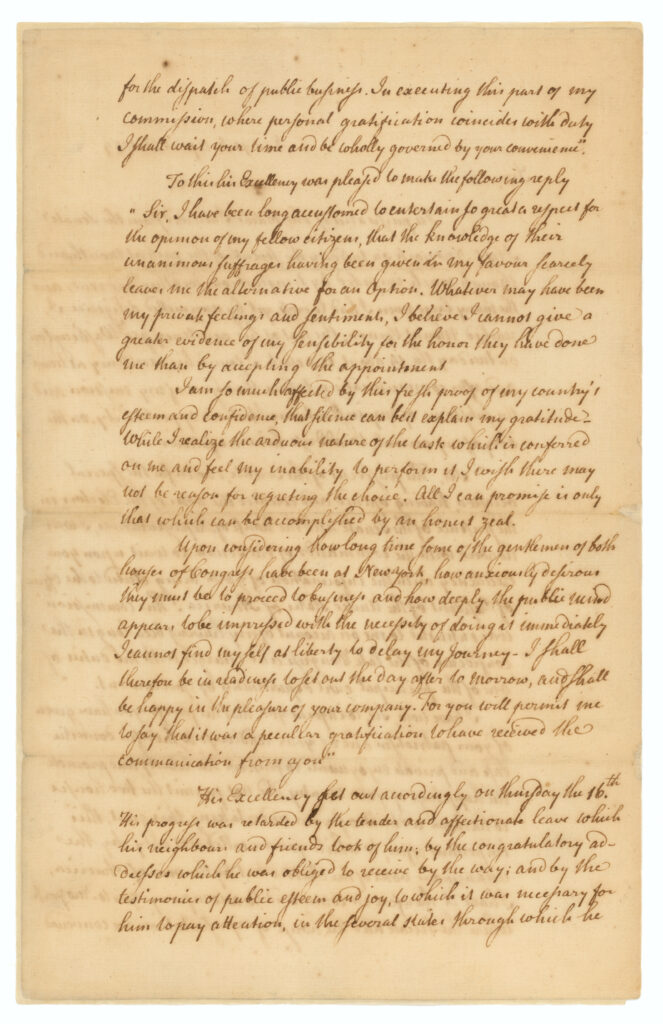 for the dispatch of public business. In executing this part of my
commission, where personal gratification coincides with duty
I shall wait your time and be wholly governed by your convenience".
To this his Excellency was pleased to make the following reply
" Sir, I have been long accustomed to entertain so great a respect for
the opinion of my fellow citizens, that the knowledge of their
unanimous suffrages having been given in my favour scarcely
leaves me the alternative for an option. Whatever may have been
my private feelings and sentiments, I believe I cannot give a
greater evidence of my sensibility for the honor they have done
me than by accepting the appointment
I am so much affected by this fresh proof of my country's
esteem and confidence, that silence can best explain my gratitude –
While I realize the arduous nature of the task which is conferred
on me and feel my inability to perform it, I wish there may
not be reason for regreting the choice. All I can promise is only
that which can be accomplished by an honest zeal.
Upon considering how long time some of the gentlemen of both
houses of Congress have been at New York, how anxiously desirous
they must be to proceed to business and how deeply the public mind
appears to be impressed with the necessity of doing it immediately
I cannot find myself at liberty to delay my Journey – I shall
therefore be in readiness to set out the day after to morrow, and shall
be happy in the pleasure of your company. For you will permit me
to say that it was a peculiar gratification to have received the
communication from you"
His Excellency set out accordingly on thursday the 16.th
His progress was retarded by the tender and affectionate leave which
his neighbours and friends took of him; by the congratulatory ad-
dresses which he was obliged to receive by the way; and by the
testimonies of public esteem and joy, to which it was necessary for
him to pay attention, in the several states through which he